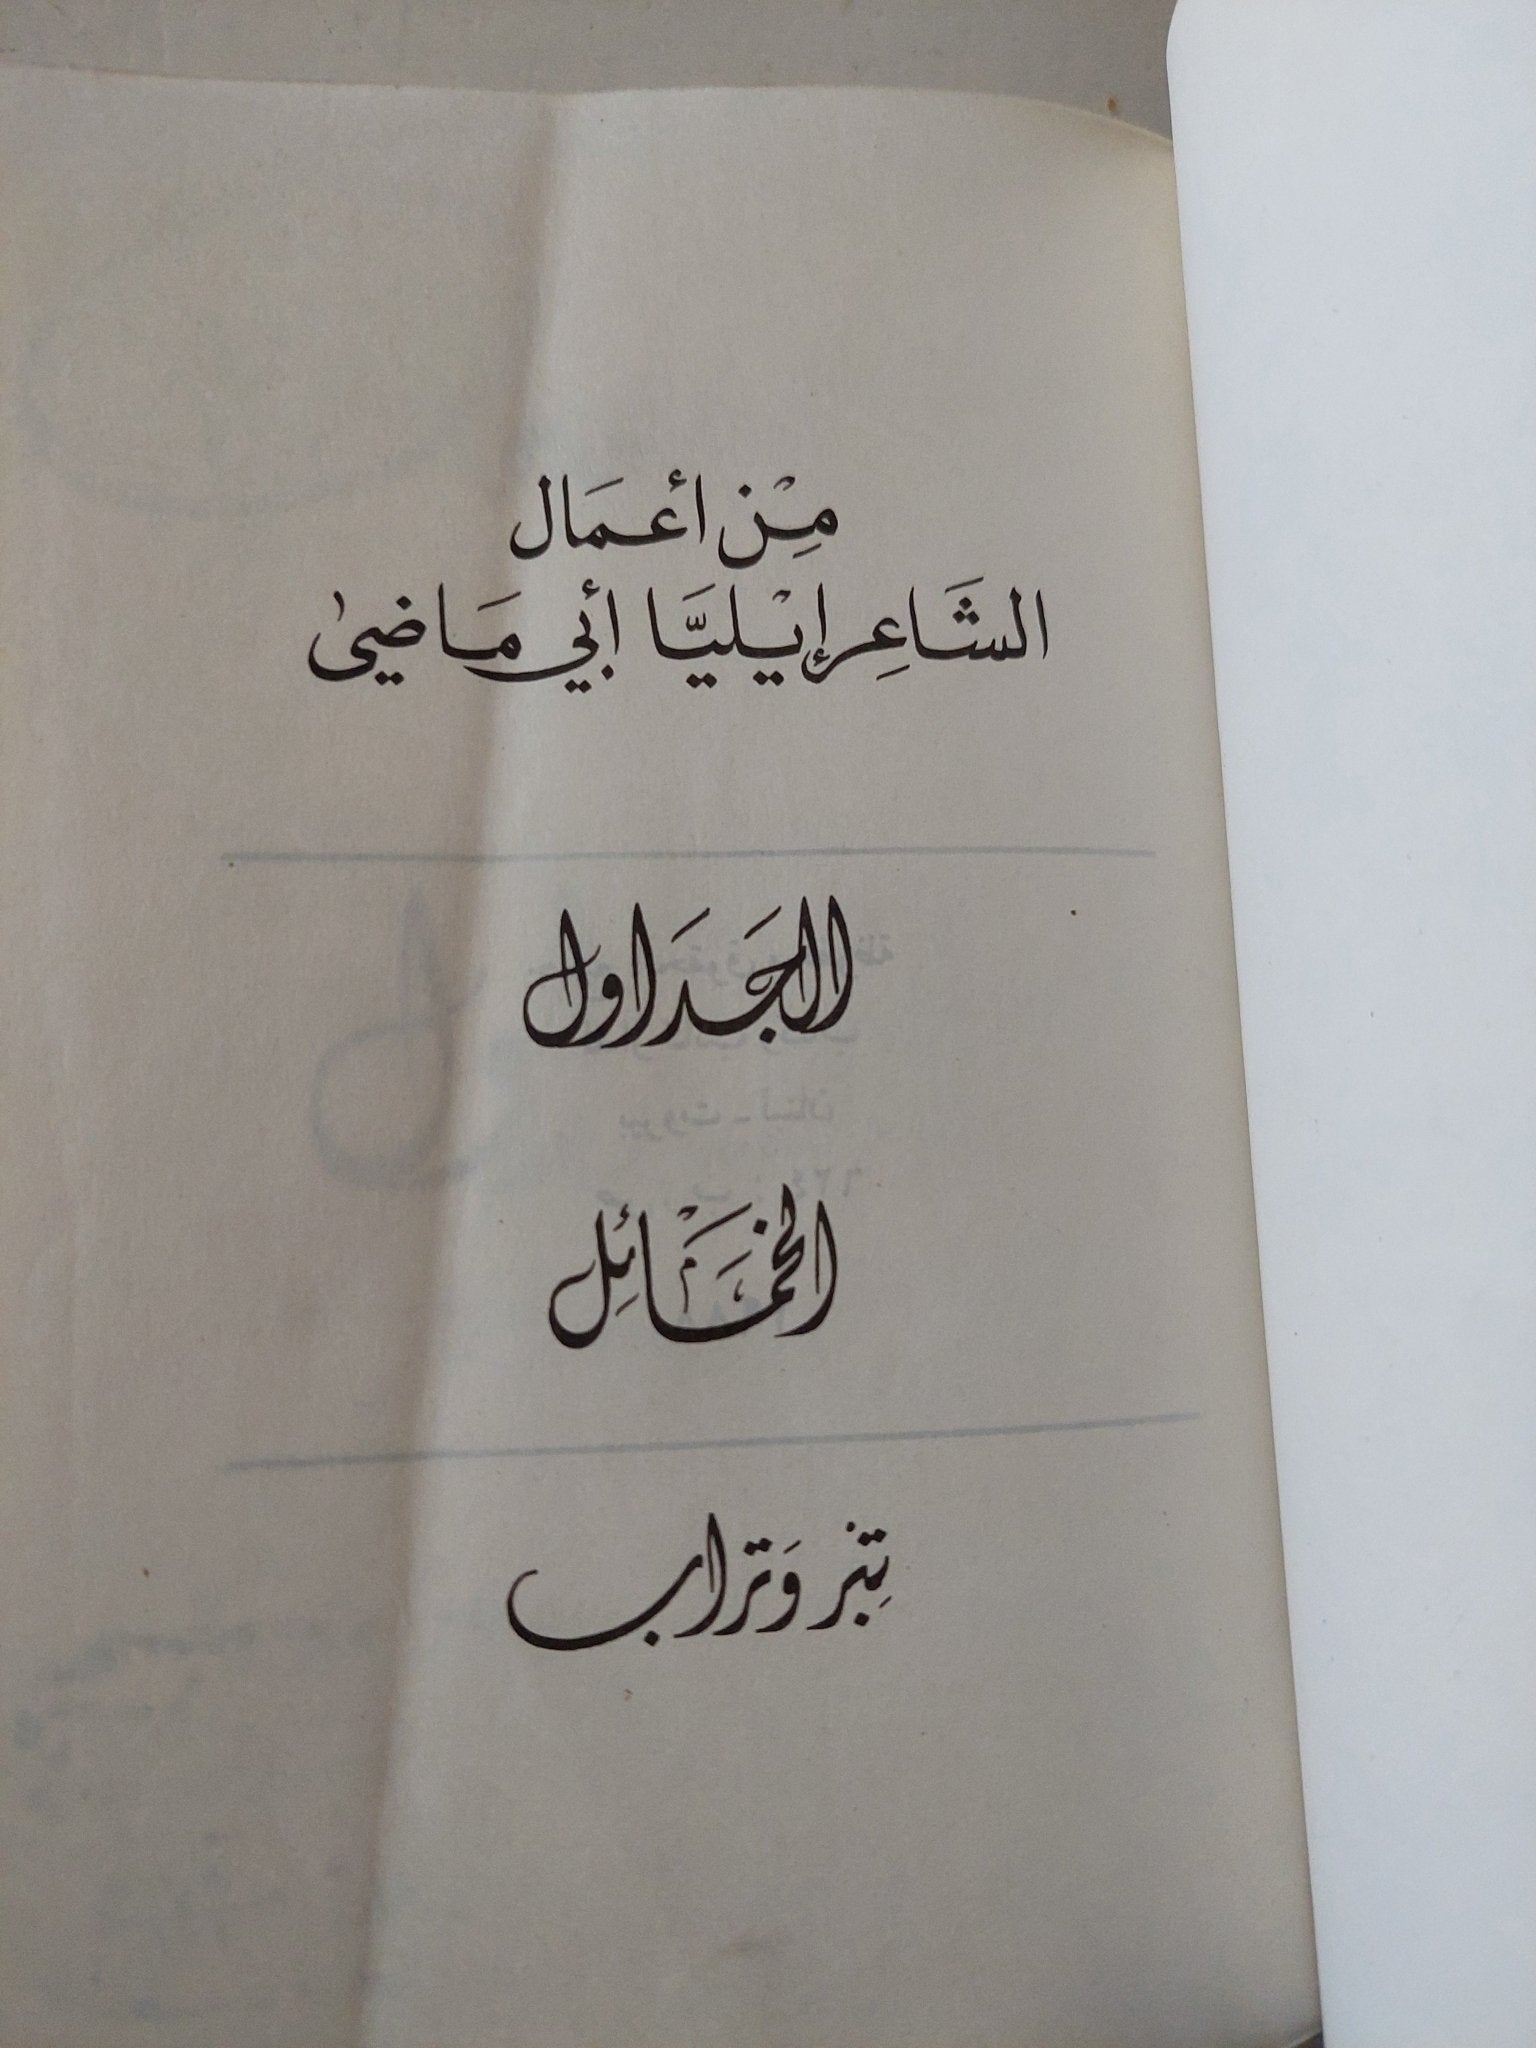 مِنْ أعمَال
الشَاعِر إيْليَّا أبي مَاضيٰ
الجَدَاول
الخمَائِل
تِبْر وَتراب